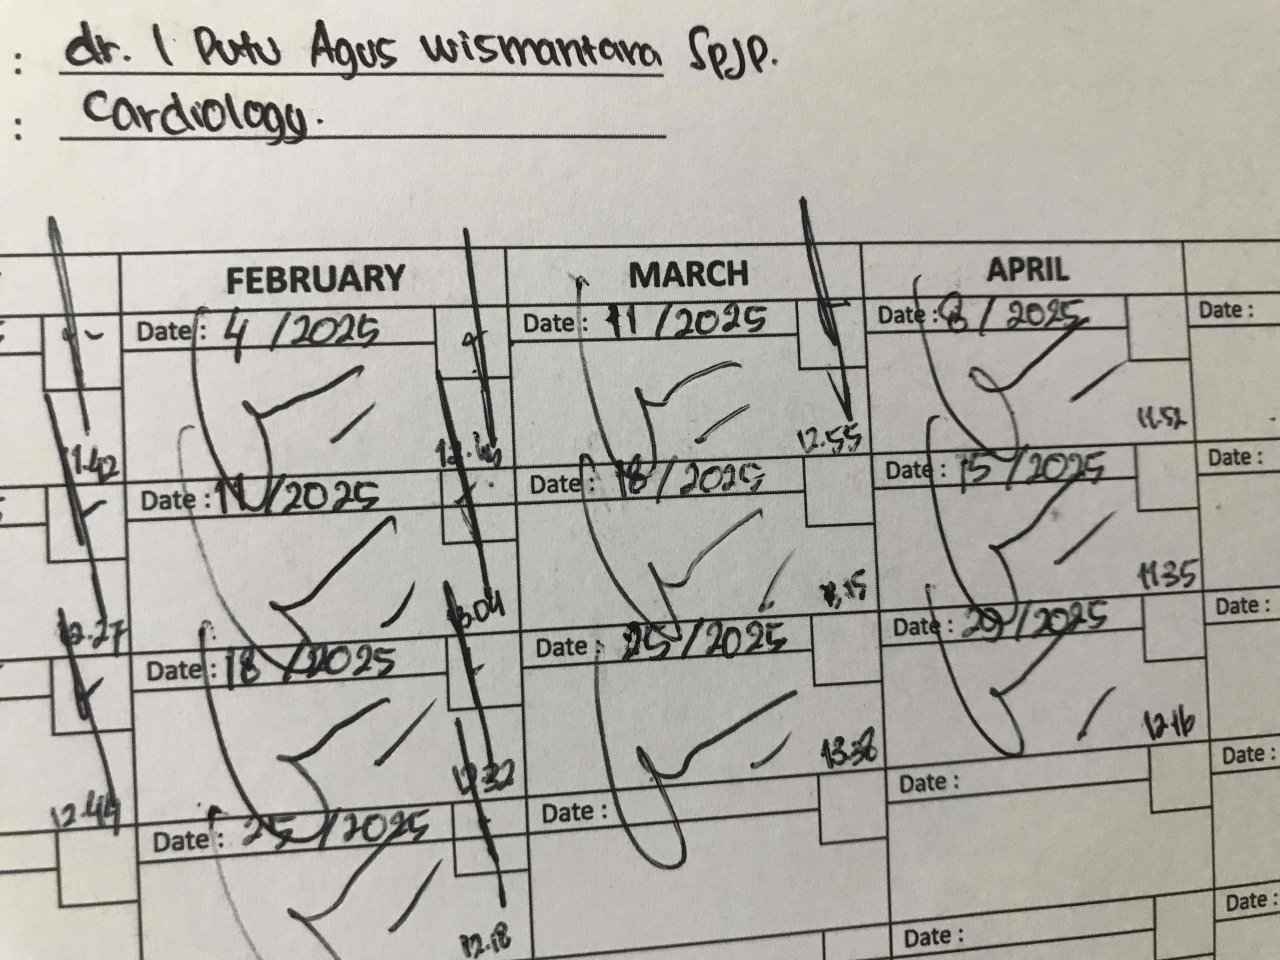 : dr. I Putu Agus Wismantara SpJP.
: Cardiology.
FEBRUARY MARCH APRIL
Date : 4 /2025 Date : 11 /2025 Date : 8 / 2025 Date :
11.42 12.55 11.52
Date : 11 /2025 Date : 18 /2025 Date : 15 /2025 Date :
12.27 13.04 11.35
Date : 18 /2025 Date : 25 /2025 Date : 29 /2025 Date :
12.44 12.32 13.38 12.16
Date : 25 /2025 Date : Date : Date :
12.18
Date : Date :